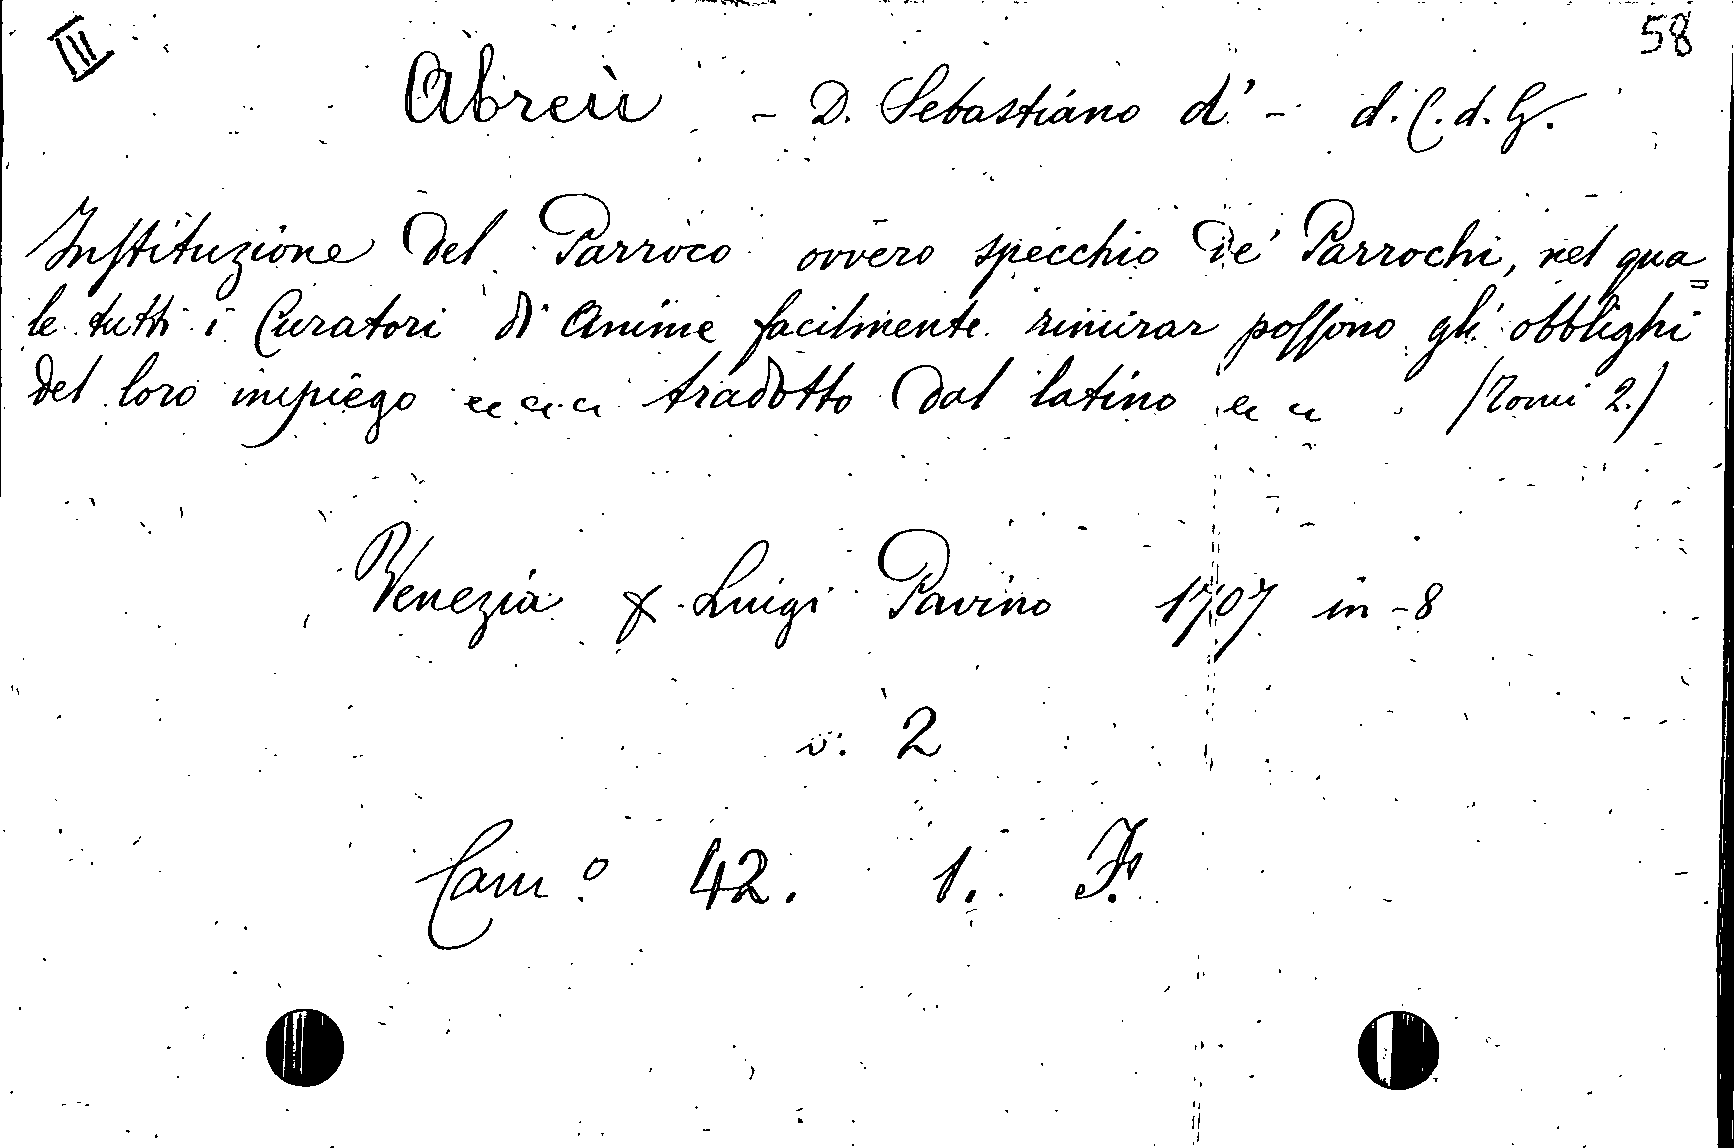 III 58
Abreù - D. Sebastiano d' - d. C. d. G.
Instituzione del Parroco ovvero specchio de' Parrochi, nel qua=
le tutti i Curatori di Anime facilmente rimirar possono gli obblighi
del loro impiego tradotto dal latino (Tomi 2.)
Venezia Luigi Pavino 1707 in-8
v. 2
Cam.º 42. 1. F.